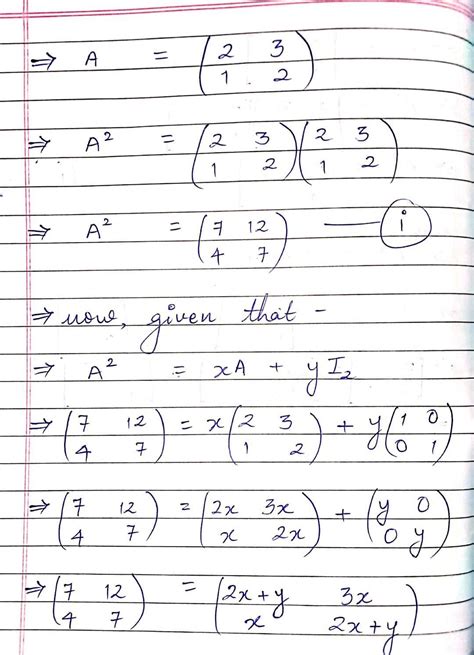 ⇒ A = (2 3
1 2)
⇒ A² = (2 3
1 2) (2 3
1 2)
⇒ A² = (7 12
4 7) — i
⇒ now, given that -
⇒ A² = xA + yI₂
⇒ (7 12
4 7) = x(2 3
1 2) + y(1 0
0 1)
⇒ (7 12
4 7) = (2x 3x
x 2x) + (y 0
0 y)
⇒ (7 12
4 7) = (2x+y 3x
x 2x+y)